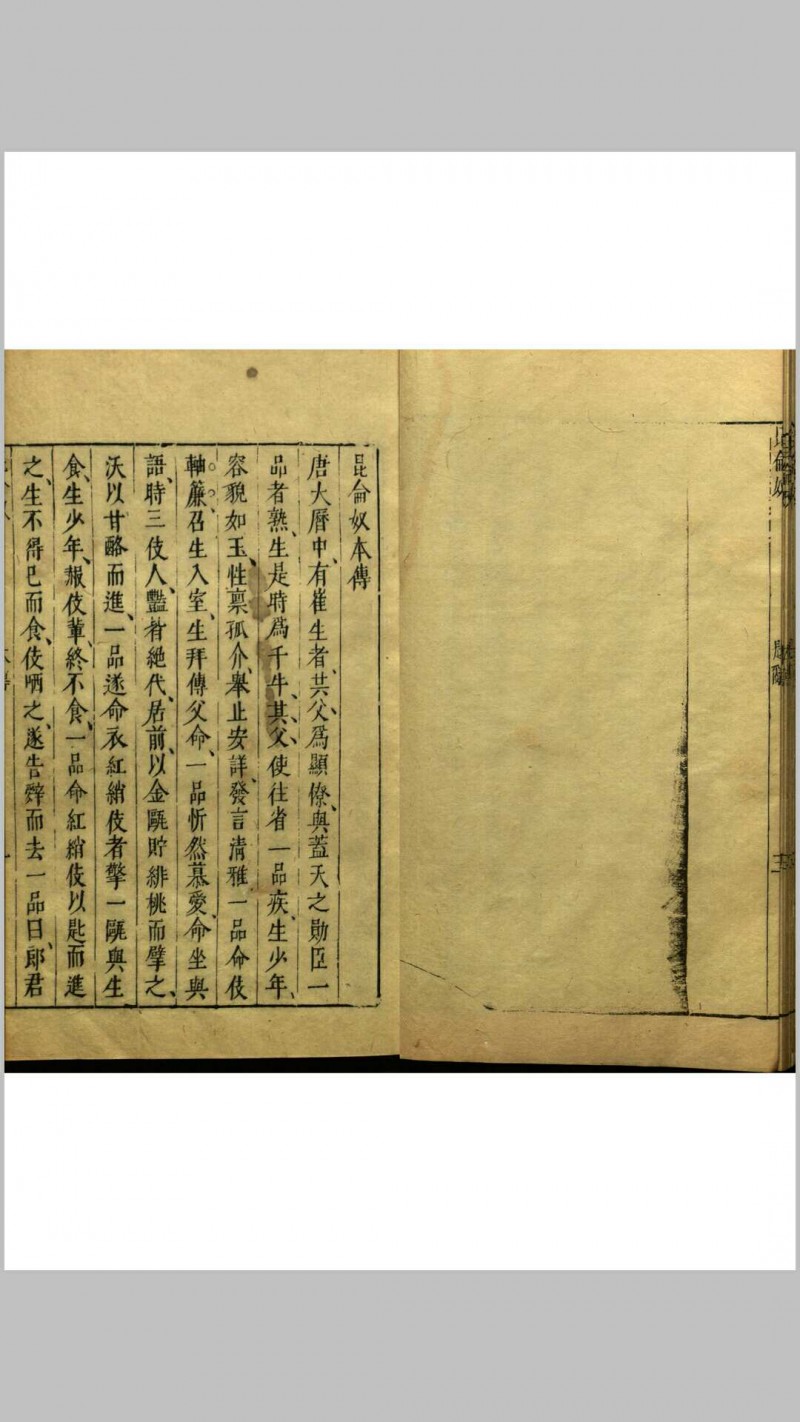 昆侖奴
三
昆侖奴本傳
唐大曆中、有崔生者、其父爲顯僚、與蓋天之勛臣一
品者熟、生是時爲千牛、其父使往省一品疾、生少年、
容貌如玉、性稟孤介、舉止安詳、發言清雅一品命伎
軸簾召生入室、生拜傳父命、一品忻然慕愛、命坐與
語、時三伎人、豔皆絕代、居前、以金甌貯緋桃而擘之、
沃以甘酪而進、一品遂命衣紅綃伎者擎一甌與生
食、生少年、赧伎輩、終不食、一品命紅綃伎以匙而進
之、生不得已而食、伎哂之、遂告辭而去一品曰、郎君